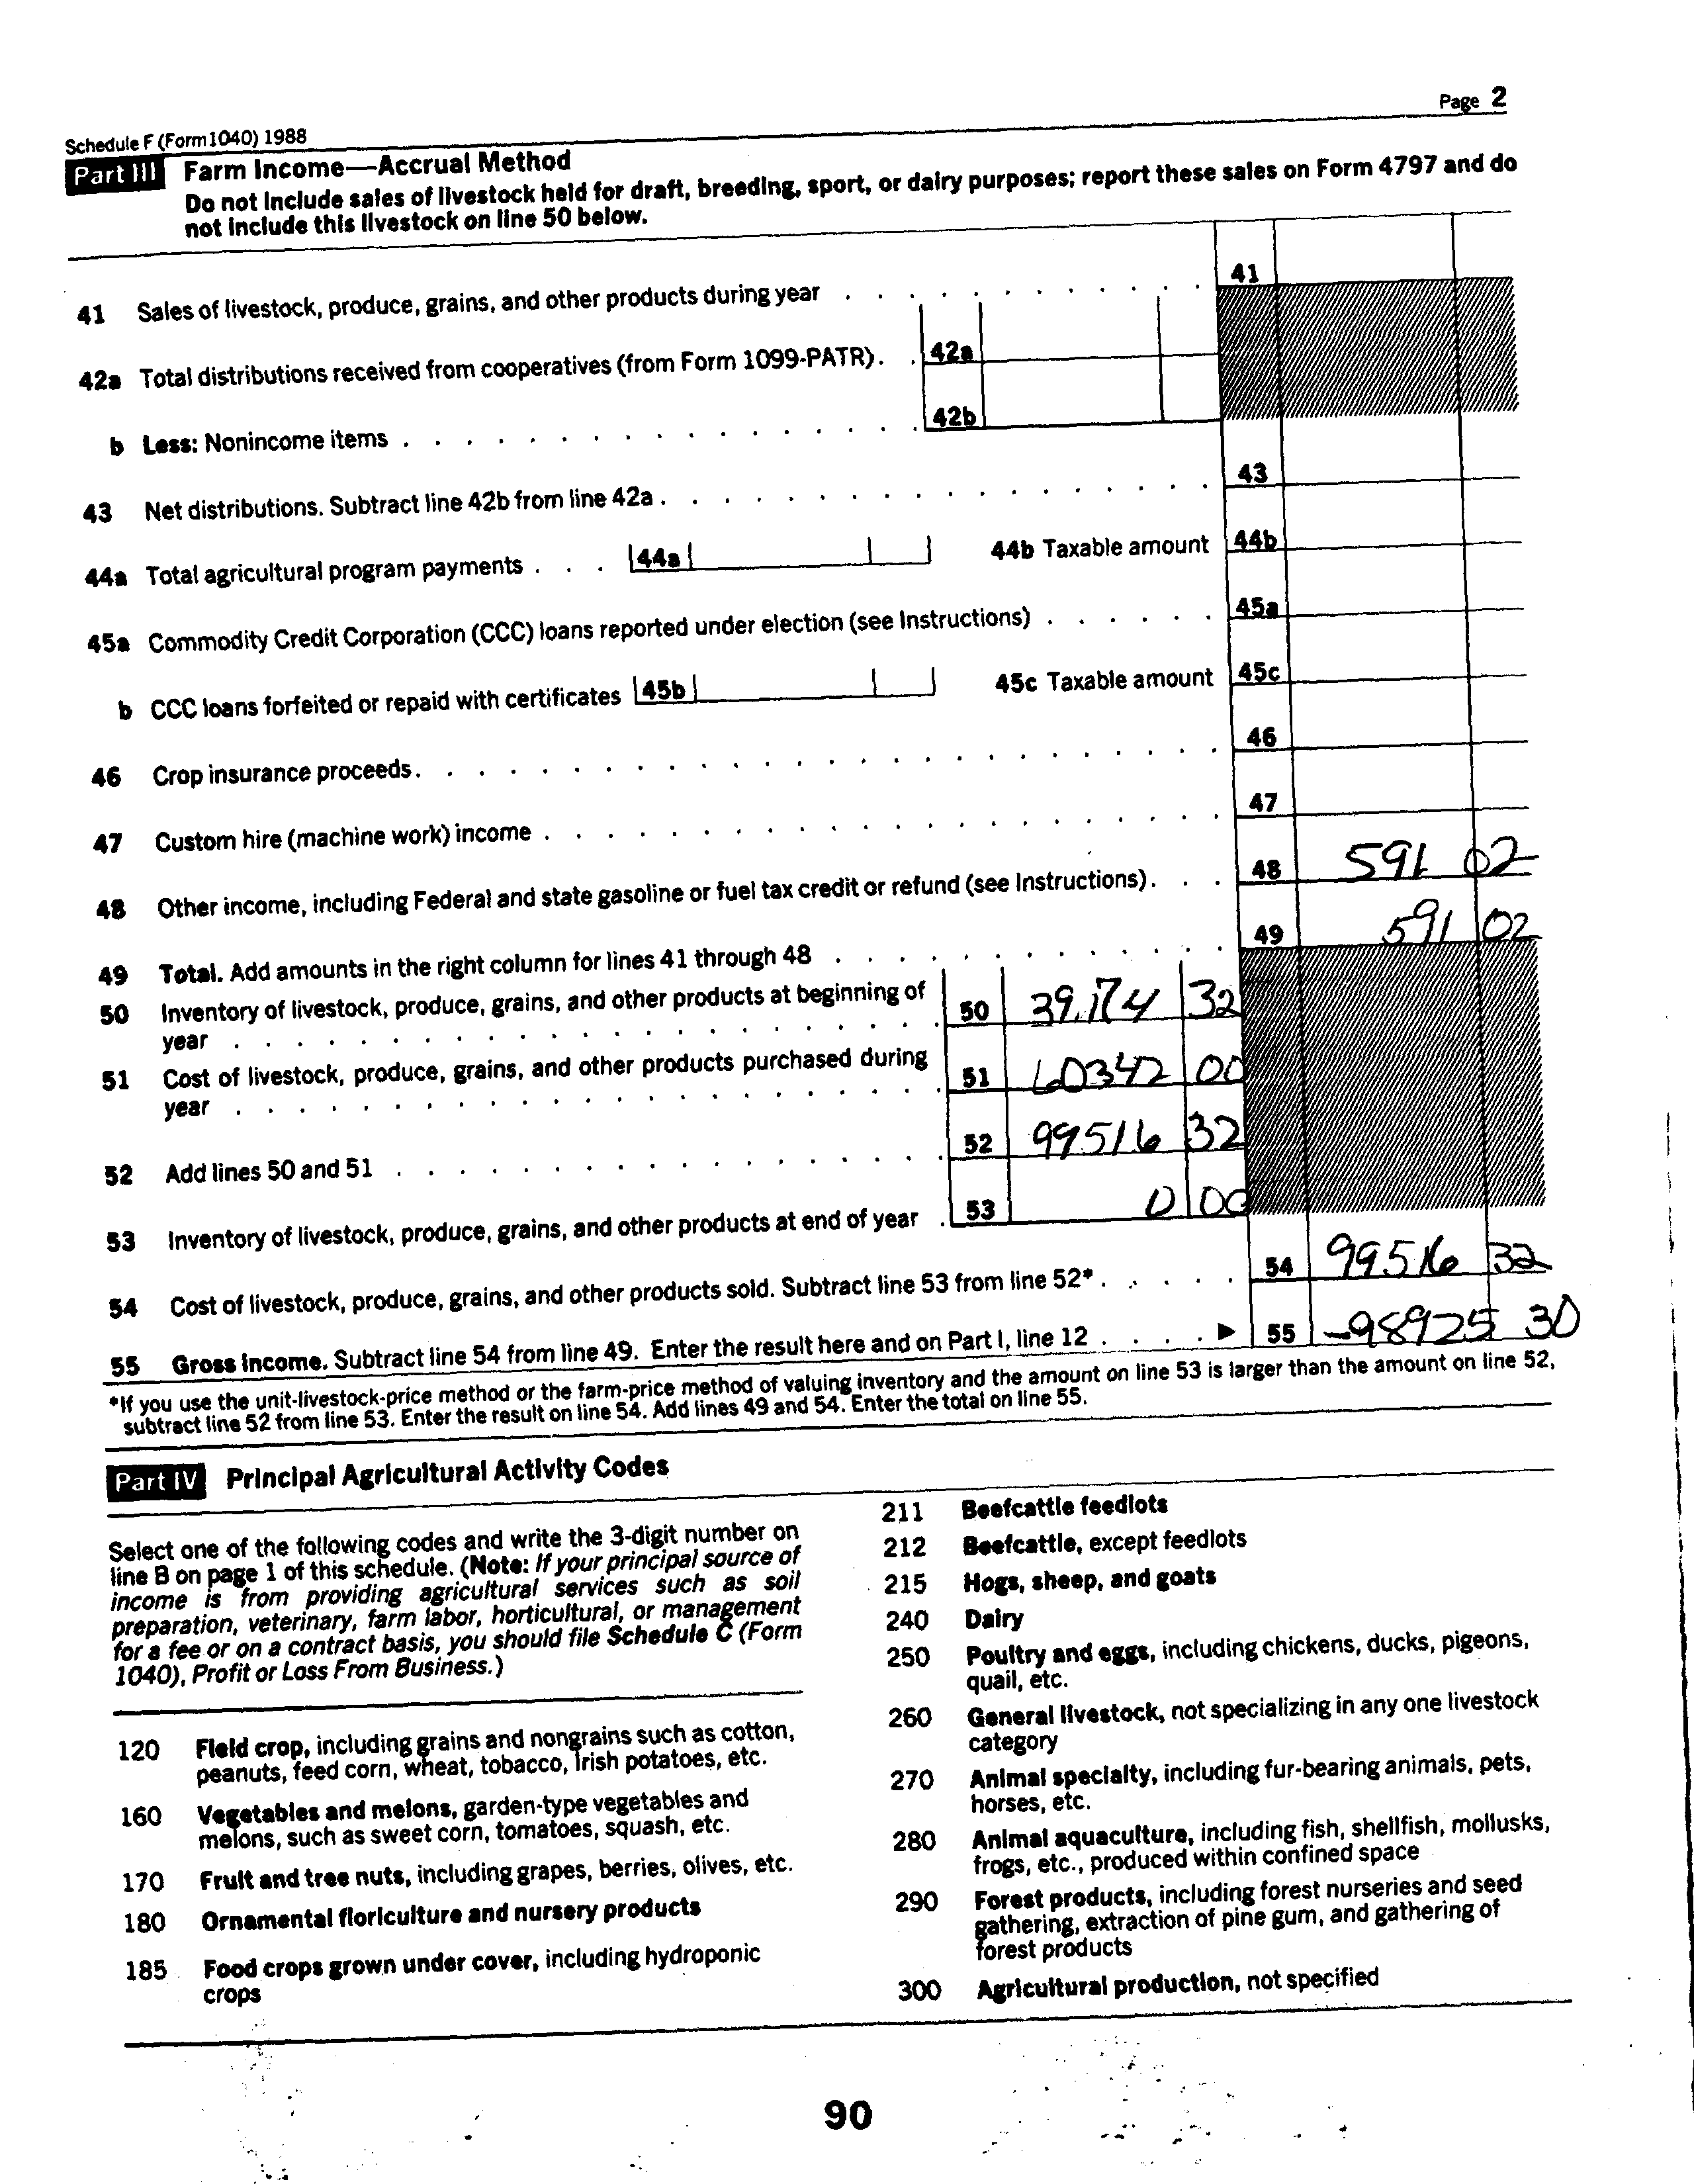 Page 2
Schedule F (Form 1040) 1988
Part III Farm Income—Accrual Method
Do not include sales of livestock held for draft, breeding, sport, or dairy purposes; report these sales on Form 4797 and do
not include this livestock on line 50 below.
41 Sales of livestock, produce, grains, and other products during year . . . . . . . . . . . . 41
42a Total distributions received from cooperatives (from Form 1099-PATR) . . 42a
b Less: Nonincome items . . . . . . . . . . . . . . . . . 42b
43 Net distributions. Subtract line 42b from line 42a . . . . . . . . . . . . . . . . . . 43
44a Total agricultural program payments . . . 44a 44b Taxable amount 44b
45a Commodity Credit Corporation (CCC) loans reported under election (see Instructions) . . . . . . 45a
b CCC loans forfeited or repaid with certificates 45b 45c Taxable amount 45c
46 Crop insurance proceeds . . . . . . . . . . . . . . . . . . . . . . . . . . 46
47 Custom hire (machine work) income . . . . . . . . . . . . . . . . . . . . . . 47
48 Other income, including Federal and state gasoline or fuel tax credit or refund (see Instructions) . . . 48 591 02
49 Total. Add amounts in the right column for lines 41 through 48 . . . . . . . . . . . . . 49 591 02
50 Inventory of livestock, produce, grains, and other products at beginning of
year . . . . . . . . . . . . . . . . . . . . . . . 50 39,174 32
51 Cost of livestock, produce, grains, and other products purchased during
year . . . . . . . . . . . . . . . . . . . . . . . 51 60342 00
52 Add lines 50 and 51 . . . . . . . . . . . . . . . . . . 52 99516 32
53 Inventory of livestock, produce, grains, and other products at end of year . 53 0 00
54 Cost of livestock, produce, grains, and other products sold. Subtract line 53 from line 52* . . . . . 54 99516 32
55 Gross income. Subtract line 54 from line 49. Enter the result here and on Part I, line 12 . . . . ▶ 55 -98925 30
*If you use the unit-livestock-price method or the farm-price method of valuing inventory and the amount on line 53 is larger than the amount on line 52,
subtract line 52 from line 53. Enter the result on line 54. Add lines 49 and 54. Enter the total on line 55.
Part IV Principal Agricultural Activity Codes
Select one of the following codes and write the 3-digit number on
line B on page 1 of this schedule. (Note: If your principal source of
income is from providing agricultural services such as soil
preparation, veterinary, farm labor, horticultural, or management
for a fee or on a contract basis, you should file Schedule C (Form
1040), Profit or Loss From Business.)
120 Field crop, including grains and nongrains such as cotton,
peanuts, feed corn, wheat, tobacco, Irish potatoes, etc.
160 Vegetables and melons, garden-type vegetables and
melons, such as sweet corn, tomatoes, squash, etc.
170 Fruit and tree nuts, including grapes, berries, olives, etc.
180 Ornamental floriculture and nursery products
185 Food crops grown under cover, including hydroponic
crops
211 Beefcattle feedlots
212 Beefcattle, except feedlots
215 Hogs, sheep, and goats
240 Dairy
250 Poultry and eggs, including chickens, ducks, pigeons,
quail, etc.
260 General livestock, not specializing in any one livestock
category
270 Animal specialty, including fur-bearing animals, pets,
horses, etc.
280 Animal aquaculture, including fish, shellfish, mollusks,
frogs, etc., produced within confined space
290 Forest products, including forest nurseries and seed
gathering, extraction of pine gum, and gathering of
forest products
300 Agricultural production, not specified
90